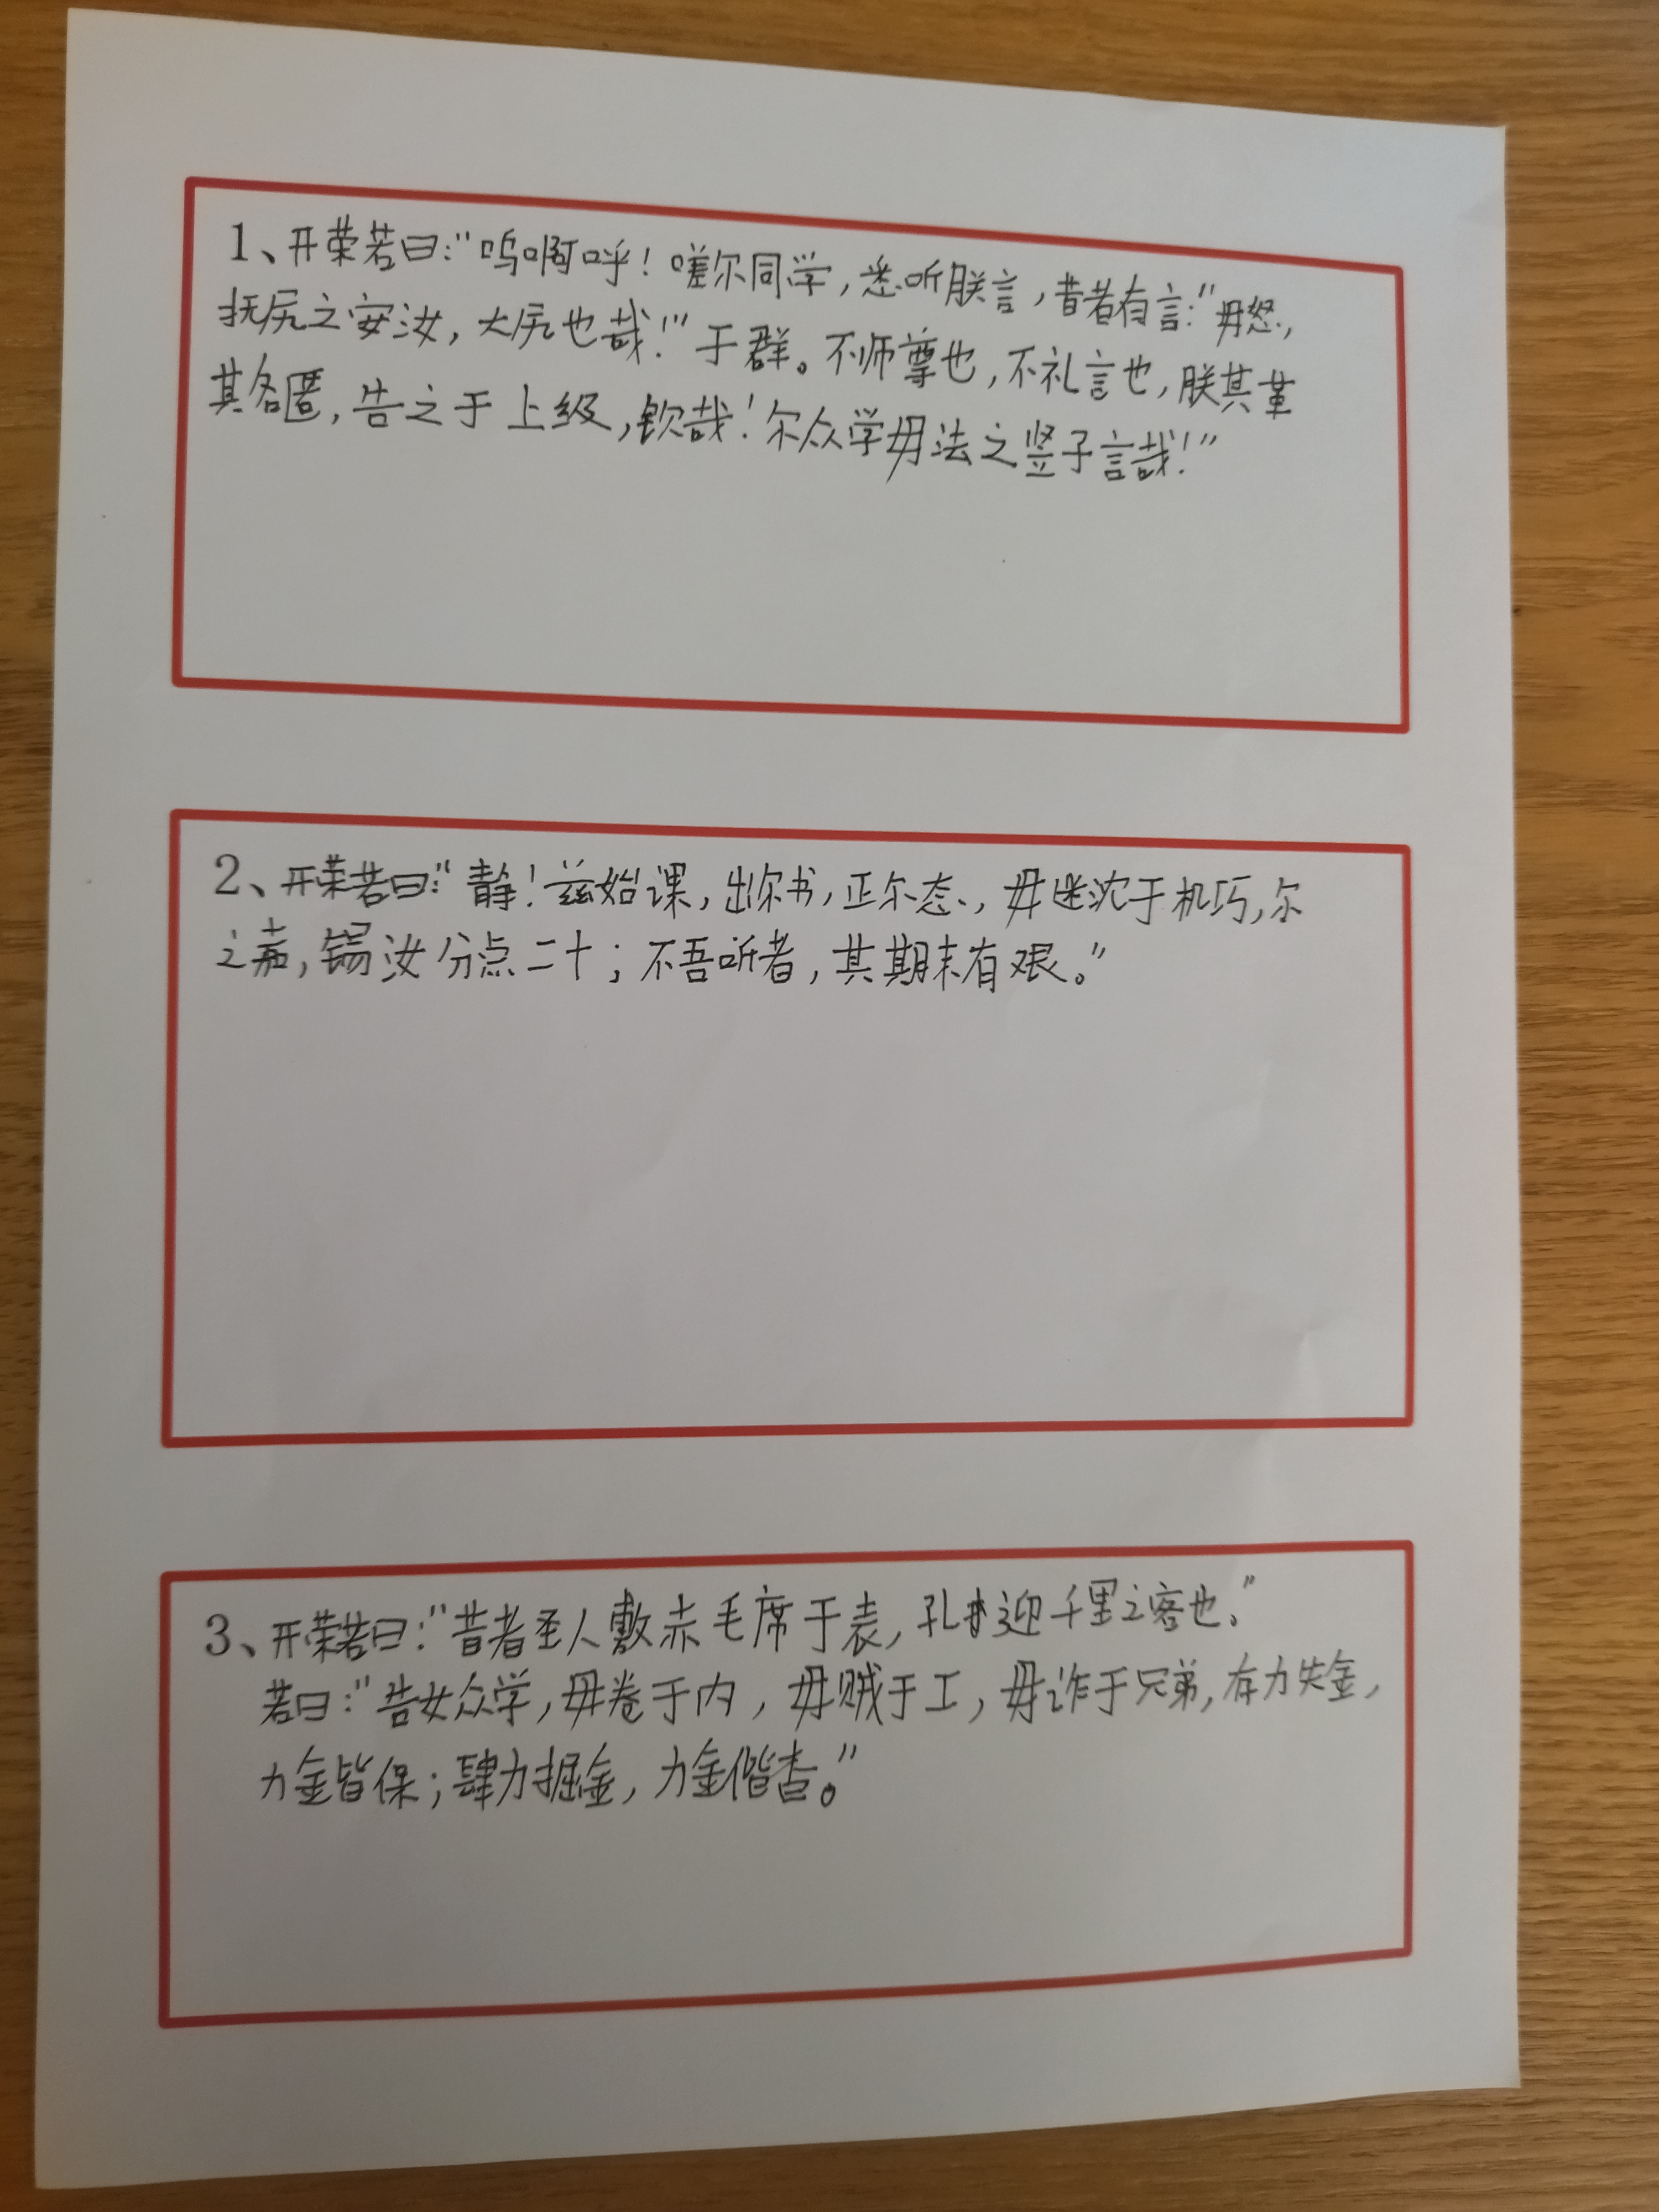 1、开荣若曰:"呜啊呼!嗟尔同学,悉听朕言,昔者有言:"毋怒,
抚尻之安汝,大尻也哉!"于群。不师尊也,不礼言也,朕其堇
其名匿,告之于上级,钦哉!尔众学毋法之竖子言哉!"
2、开荣若曰:"静!兹始课,出尔书,正尔态,毋迷沈于机巧,尔
之嘉,锡汝分点二十;不吾听者,其期末有艰。"
3、开荣若曰:"昔者圣人敷赤毛席于表,孔迎千里之客也。"
若曰:"告女众学,毋卷于内,毋贼于工,毋诈于兄弟,存力失金,
力金皆保;肆力掘金,力金偕杳。"